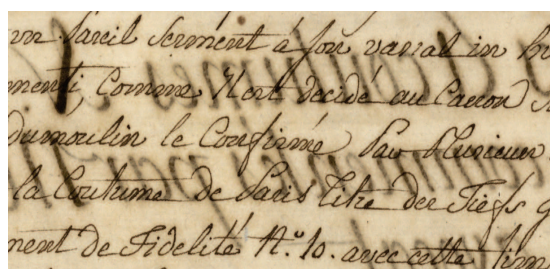 un pareil serment á son vassal in
menti, Comme Il est decidé au Canon
Dumoulin le Confirme Par Plusieurs
la Coutume de Paris titre des Fiefs
ment de Fidelité N.º 10. avec cette